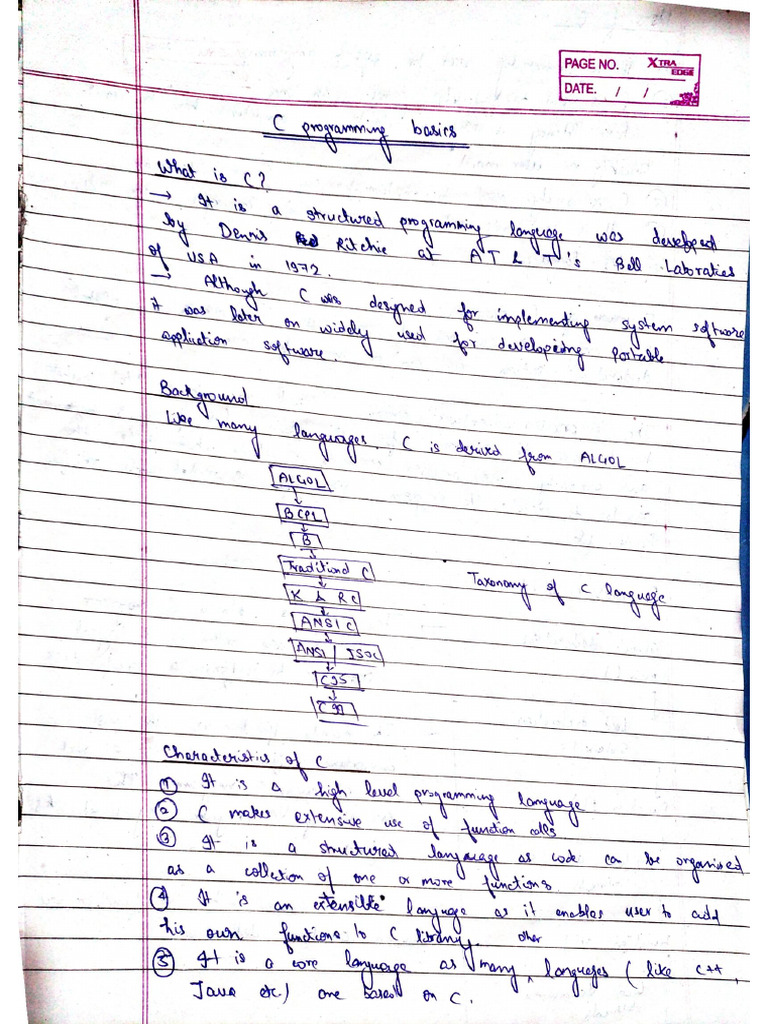 PAGE NO.
XTRA EDGE
DATE. / /
C programming basics
What is C?
→ It is a structured programming language was developed
by Dennis Ritchie at AT & T's Bell Laboraties
of USA in 1972.
→ Although C was designed for implementing system software
it was later on widely used for developing portable
application software.
Background
Like many languages. C is derived from ALGOL
ALGOL
BCPL
B
Traditional C
K & RC
Taxonomy of C language
ANSI C
ANSI / ISOC
C95
C99
Characteristics of C
① It is a high level programming language
② C makes extensive use of function calls
③ It is a structured language as code can be organised
as a collection of one or more functions
④ It is an extensible language as it enables user to add
his own functions to C library.
⑤ It is a core language as many other languages (like C++,
Java etc.) are based on C.